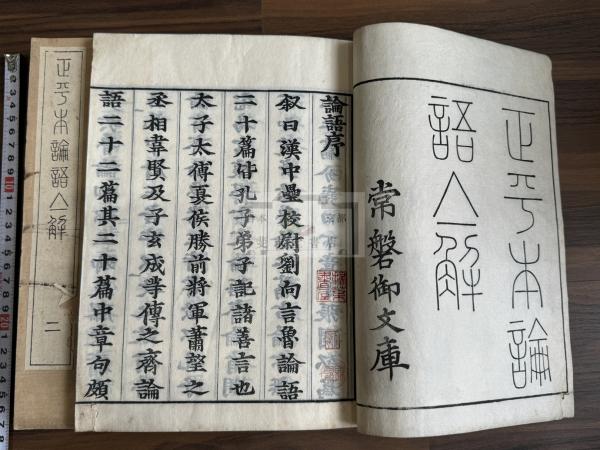 正平本論
語人解
常磐御文庫
論語序
叙曰漢中壘校尉劉向言魯論語
二十篇皆孔子弟子記諸善言也
太子太傅夏侯勝前將軍蕭望之
丞相韋賢及子玄成等傳之齊論
語二十二篇其二十篇中章句頗
正平本論語人解
二